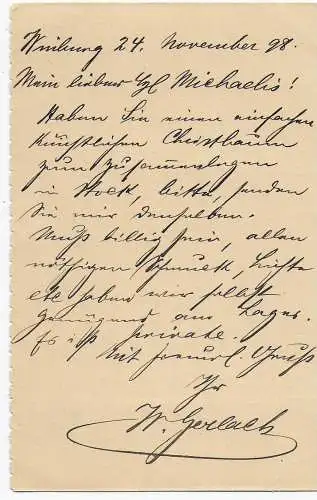 24. November 98.
Mein lieber Michaelis!
Haben Sie einen einfachen
künstlichen Christbaum
zum Zusammenlegen
in Stock, bitte, senden
Sie mir denselben.
Muß billig sein, allen
nöthigen Schmuck, Lichte
etc haben wir selbst
genügend am Lager.
Es ist private.
Mit freundl. Gruß
Ihr
W. Gerlach